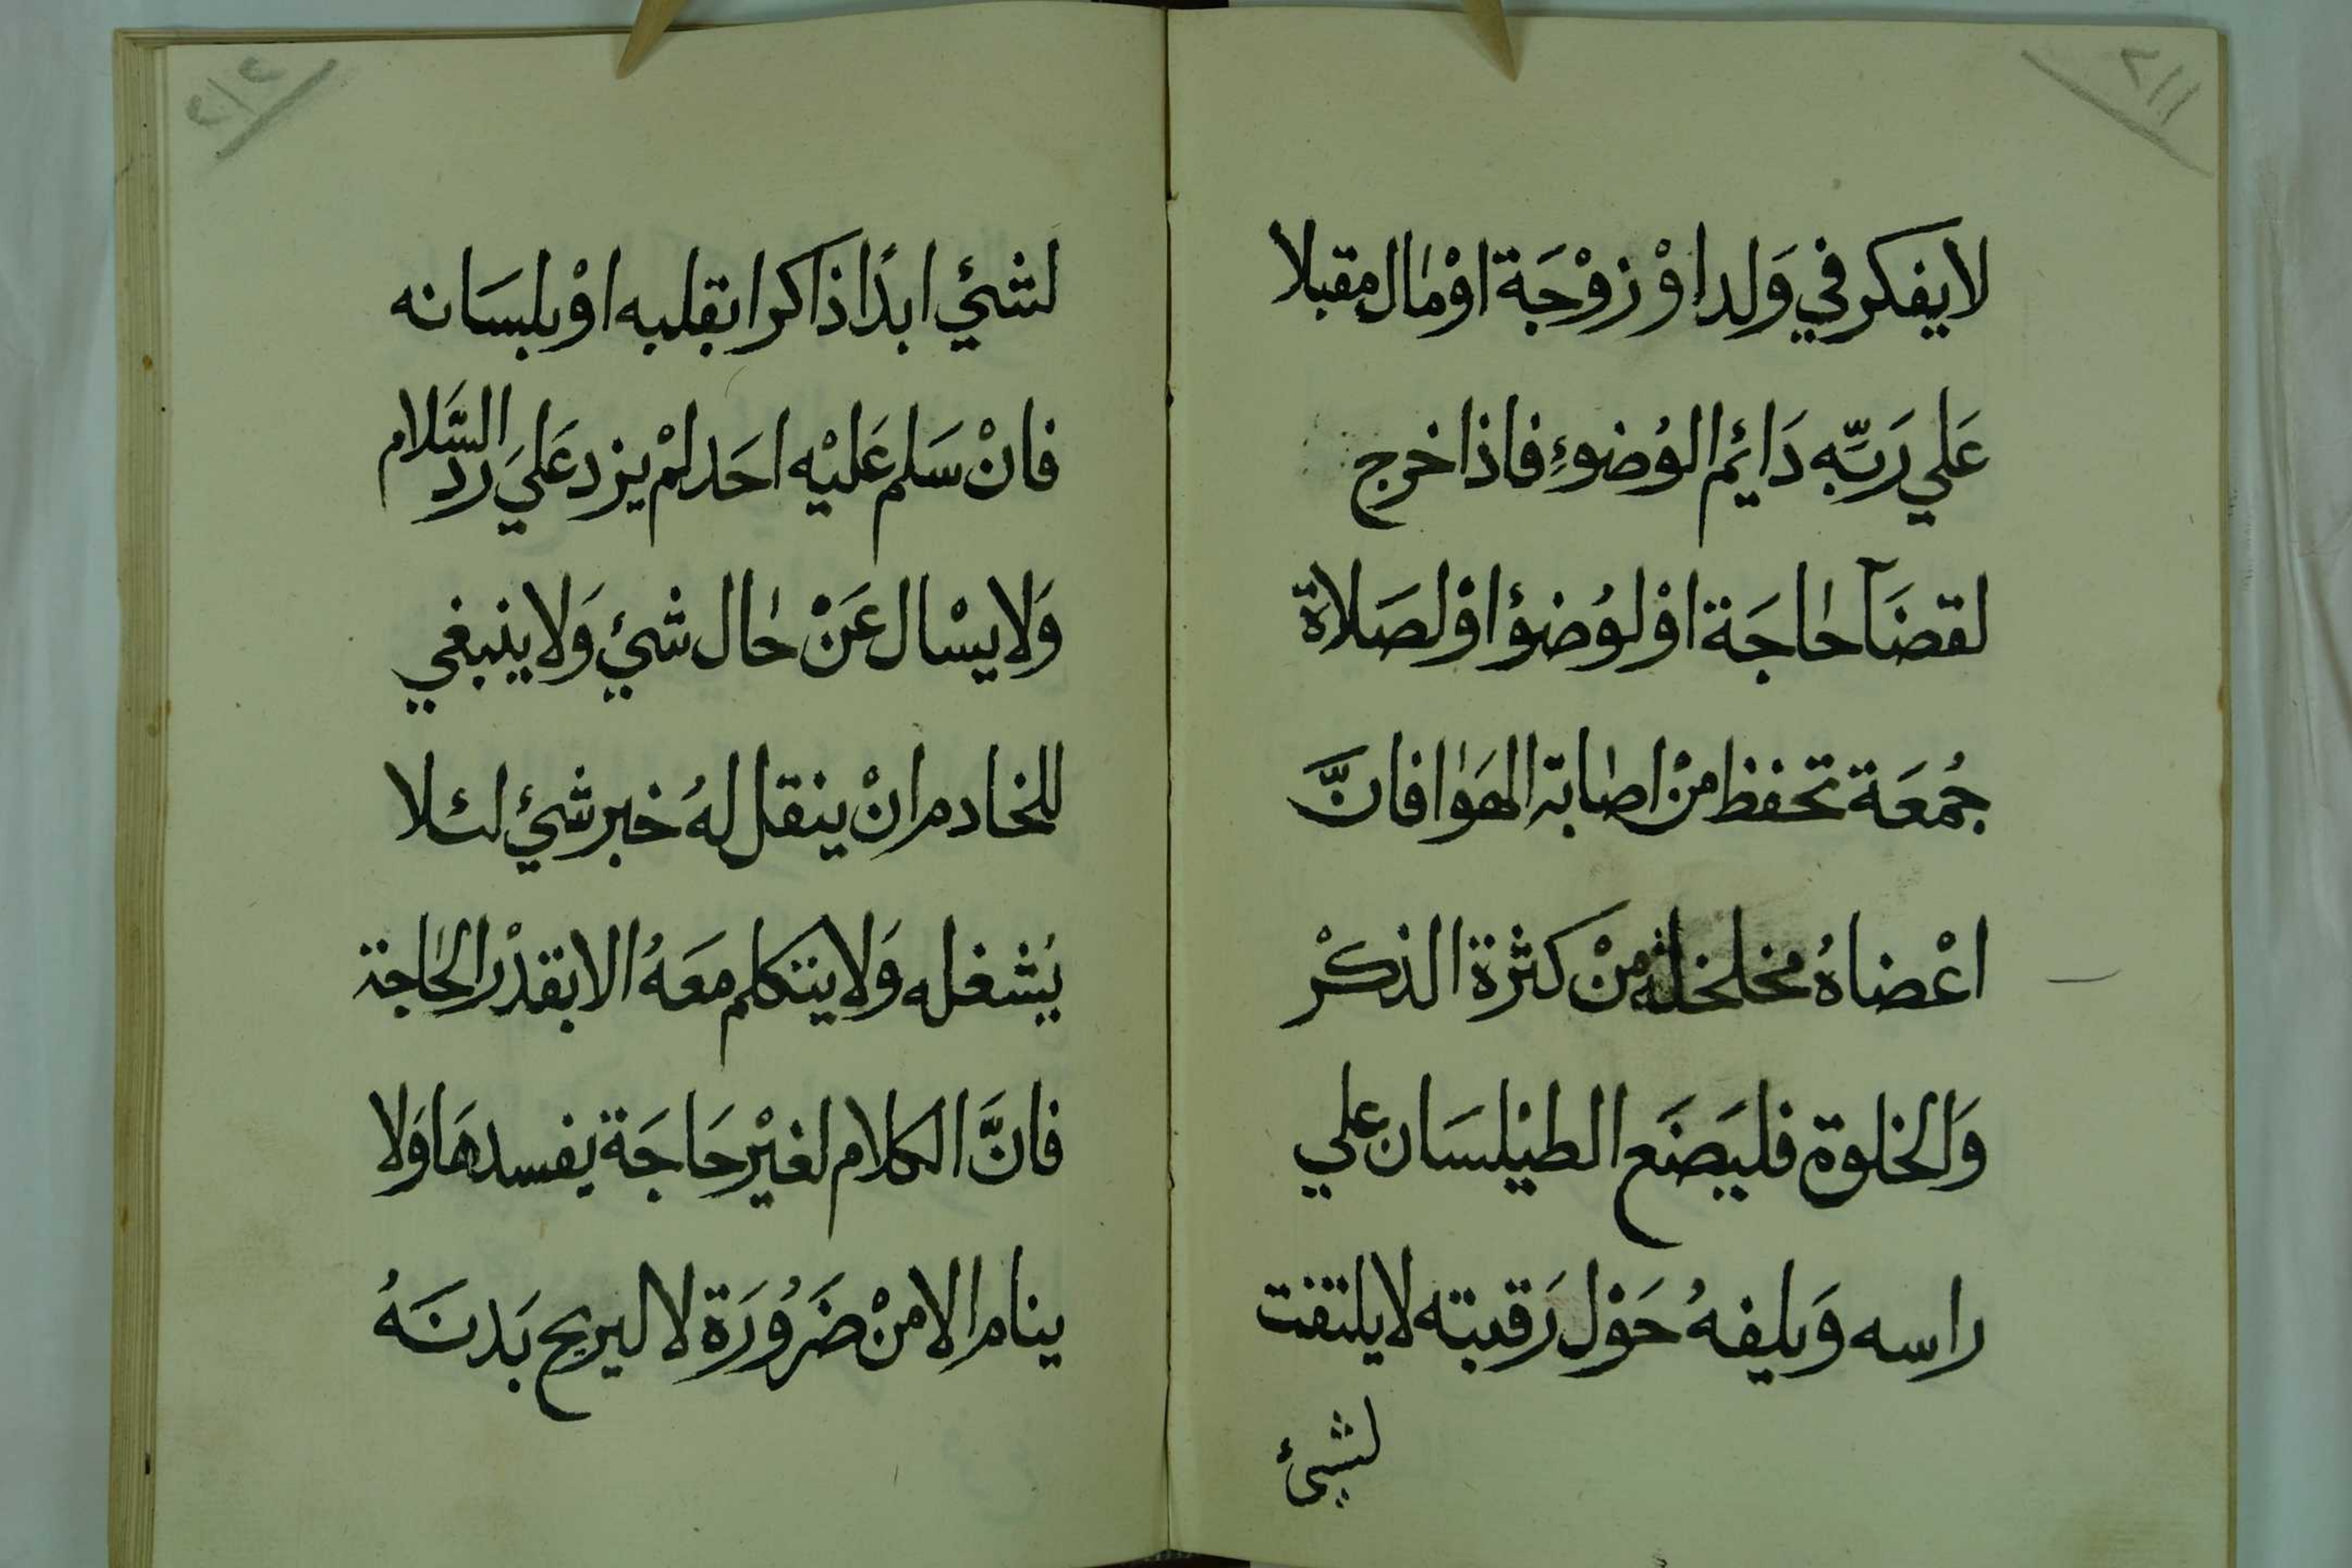 ٢١١
لا يفكر في وَلد اوْ زوْجَة اوْ مٰال مقبلا
عَلي رَبِّه دَائِم الوُضوءِ فاذا خرج
لقضَآ حٰاجَة اوْ لوُضوؤ اوْ لصَلاة
جُمعَة تحفظ منْ اصٰابة الهَوٰا فانَّ
اعْضاهُ مخلخلة منْ كثرة الذكْر
وَالخلوة فليَضَع الطيْلسَان علي
راسه وَيلفهُ حَوْل رَقبته لا يلتفت
لشيئ
٢١٢
لشيْئ ابدًا ذاكرا بقلبه اوْ بلسَانه
فانْ سَلم عَليْه احَد لمْ يزد عَليَ رَد السَّلام
وَلا يسْال عَنْ حٰال شيئ وَلا ينبغي
للخادم انْ ينقل لهُ خبر شيئ لئلا
يُشغله وَلا يتكلم معَهُ الا بقدْر الحٰاجة
فانَّ الكلام لغيْر حَاجَة يفسدهَا وَلا
ينام الا منْ ضَرُورَة لا ليريح بَدنَهُ